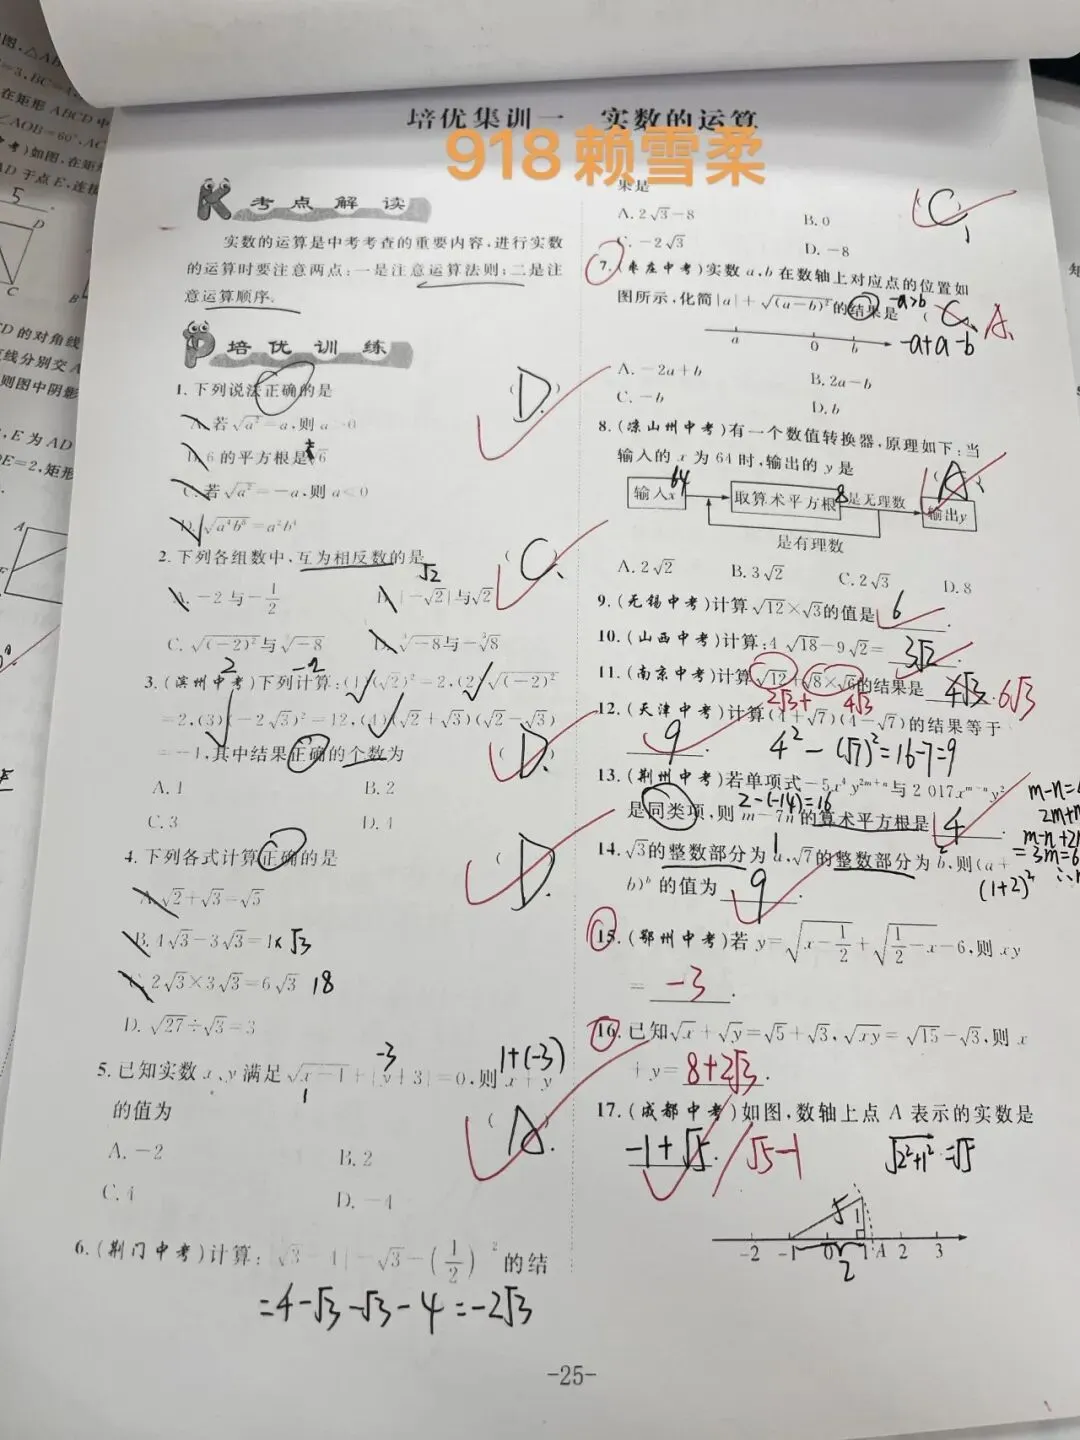 培优集训一 实数的运算
918 赖雪柔
考点解读
实数的运算是中考考查的重要内容,进行实数
的运算时要注意两点:一是注意运算法则;二是注
意运算顺序.
培优训练
1. 下列说法正确的是 (D.)
A. 若√a²=a,则 a>0
B. 6 的平方根是 ±√6
C. 若√a²=-a,则 a<0
D. √a⁴b⁸=a²b⁴
2. 下列各组数中,互为相反数的是 (C.)
√2
A. -2与-1/2 B. |-√2|与√2
C. √(-2)²与∛-8 D. ∛-8与-∛8
2 -2
3. (滨州中考)下列计算:(1)(√2)²=2,(2)√(-2)²
=2,(3)(-2√3)²=12,(4)(√2+√3)(√2-√3)
=-1,其中结果正确的个数为 (D.)
A. 1 B. 2
C. 3 D. 4
4. 下列各式计算正确的是 (D.)
A. √2+√3=√5
B. 4√3-3√3=1× √3
C. 2√3×3√3=6√3 18
D. √27÷√3=3
-3 1+(-3)
5. 已知实数 x、y 满足√x-1+|y+3|=0,则 x+y
1
的值为 (A.)
A. -2 B. 2
C. 4 D. -4
6. (荆门中考)计算:|√3-4|-√3-(1/2)⁻²的结
=4-√3-√3-4=-2√3
果是 (C)
A. 2√3-8 B. 0
C. -2√3 D. -8
7. (枣庄中考)实数 a,b 在数轴上对应点的位置如
图所示,化简|a|+√(a-b)²的结果是 (C. A.
-a>b
a 0 b -a+a-b
A. -2a+b B. 2a-b
C. -b D. b
8. (凉山州中考)有一个数值转换器,原理如下:当
输入的 x 为 64 时,输出的 y 是 (A.)
输入x 64 取算术平方根 8 是无理数 输出y
是有理数
A. 2√2 B. 3√2 C. 2√3 D. 8
9. (无锡中考)计算√12×√3的值是 6
10. (山西中考)计算:4√18-9√2= 3√2
11. (南京中考)计算√12+√8×√6的结果是 4√3. 6√3
2√3+ 4√3
12. (天津中考)计算(4+√7)(4-√7)的结果等于
9. 4²-(√7)²=16-7=9
13. (荆州中考)若单项式-5x⁴y²ᵐ⁺ⁿ与 2 017xᵐ⁻ⁿy²
2-(-14)=16
是同类项,则 m-7n 的算术平方根是 4
2m+
m-n+2
=3m=6
1 2
14. √3的整数部分为 a,√7的整数部分为 b,则(a+
b)ᵇ 的值为 9. (1+2)²
15. (鄂州中考)若 y=√x-1/2+√1/2-x-6,则 xy
= -3.
16. 已知√x+√y=√5+√3,√xy=√15-√3,则 x
+y= 8+2√3.
17. (成都中考)如图,数轴上点 A 表示的实数是
-1+√5. √5-1 √2²+1²=√5
√5 1
-2 -1 0 1 A 2 3
2
-25-